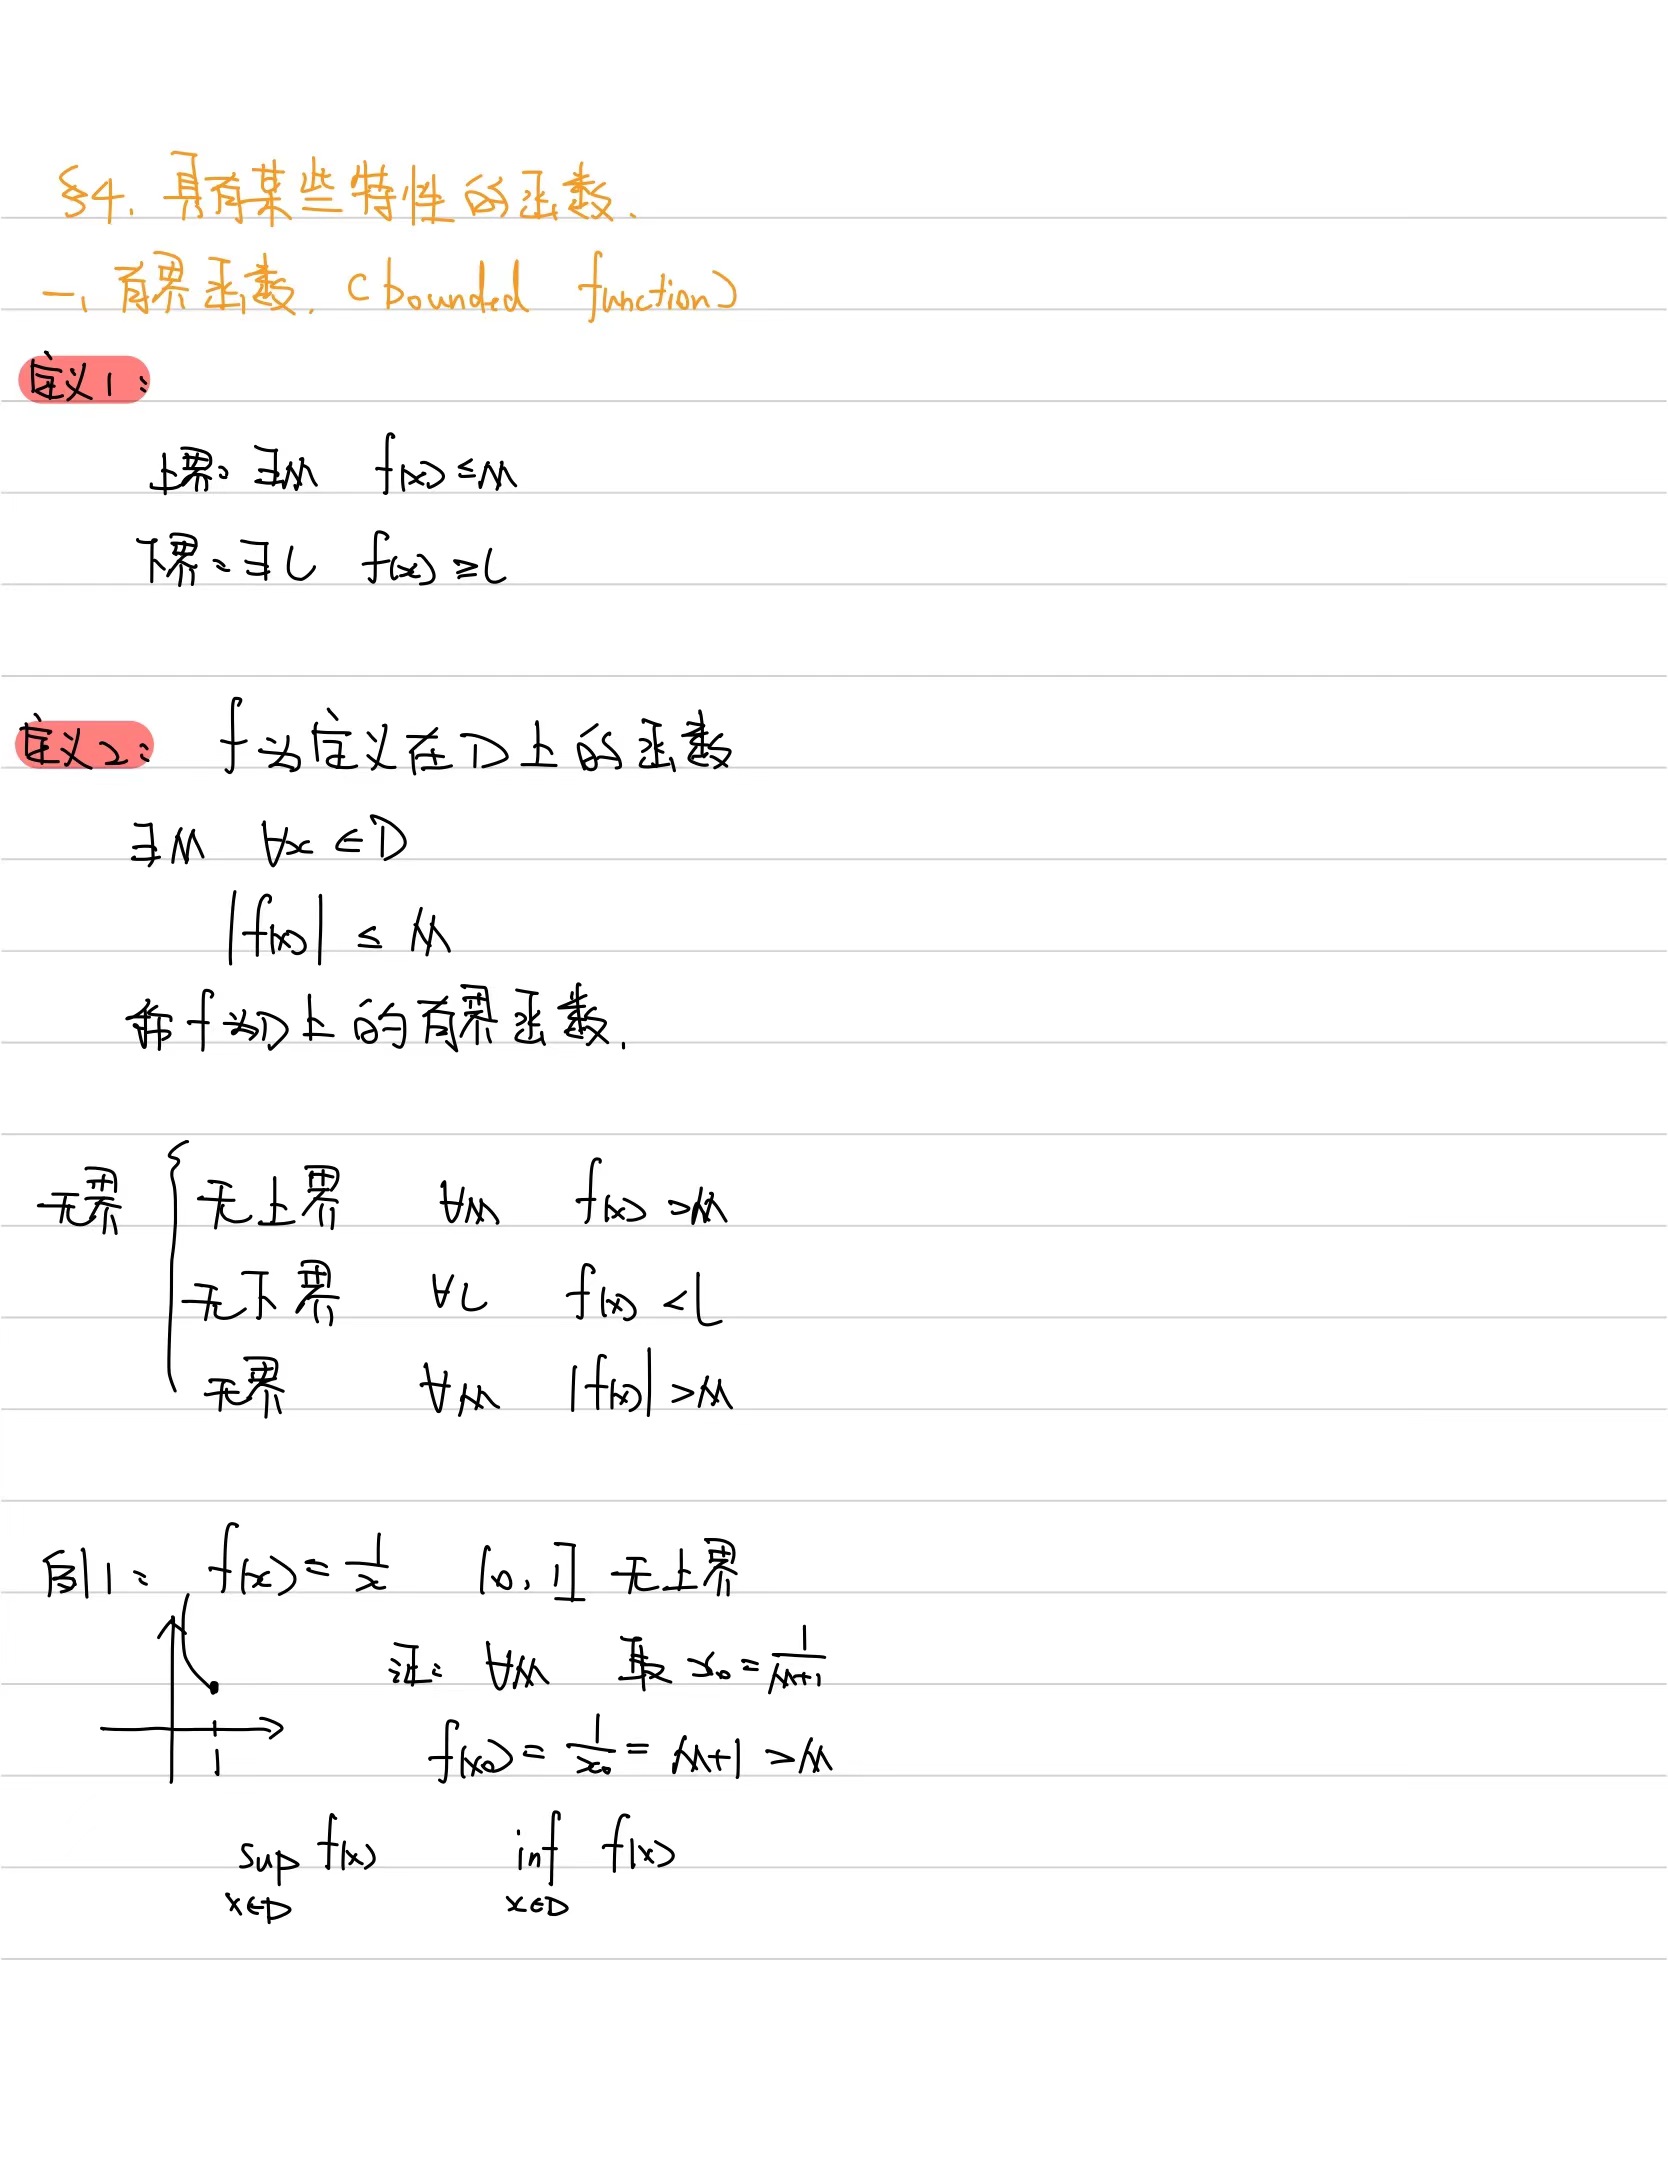 §4. 具有某些特性的函数.
一、有界函数. (bounded function)
定义1:
上界: ∃M f(x)≤M
下界: ∃L f(x)≥L
定义2: f为定义在D上的函数
∃M ∀x∈D
|f(x)| ≤ M
称f为D上的有界函数.
无界 { 无上界 ∀M f(x)>M
无下界 ∀L f(x)<L
无界 ∀M |f(x)|>M
例1: f(x)=1/x (0,1] 无上界
证: ∀M 取 x₀=1/(M+1)
1
f(x₀)=1/x₀=M+1>M
sup f(x) inf f(x)
x∈D x∈D